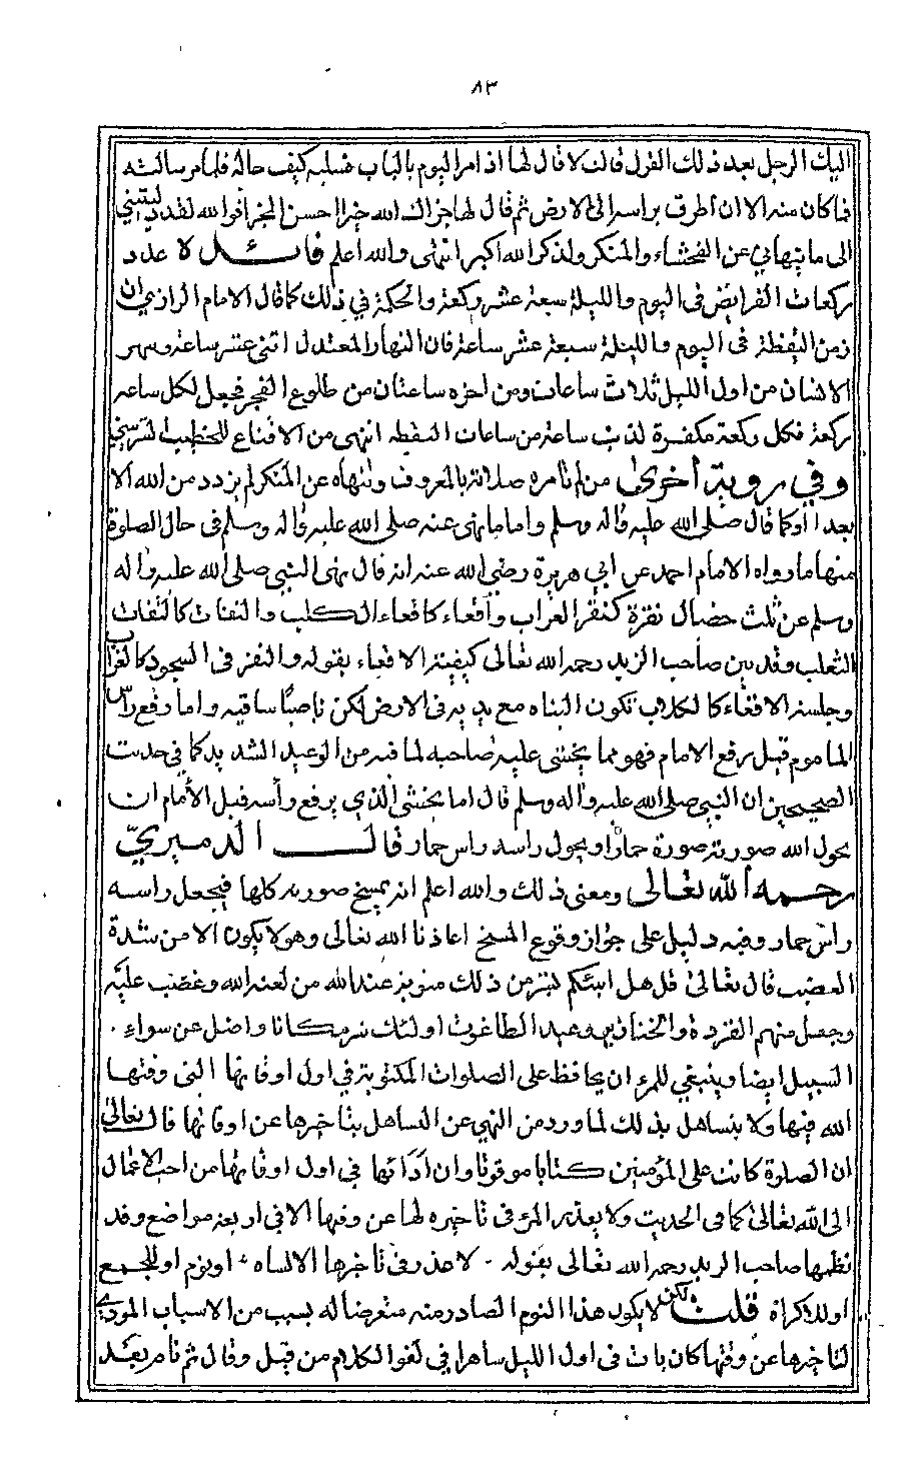 ٨٣
اليك الرجل بعد ذلك القول قالت لا قال لها اذا مر اليوم بالباب فسليه كيف حاله فلما مر سالته
فما كان منه الا ان أطرق براسه الى الارض ثم قال لها جزاك الله خيرا احسن الجزا فوالله لقد
الى ما ينهاني عن الفحشاء والمنكر ولذكر الله أكبر انتهى والله اعلم فائدة لا عدد
ركعات الفرايض فى اليوم والليلة سبعة عشر ركعة والحكمة في ذلك كما قال الامام الرازي ان
زمن اليقظة فى اليوم والليلة سبعة عشر ساعة فان النهار المعتدل اثنى عشر ساعة وسهر
الانسان من اول الليل ثلاث ساعات ومن اخره ساعتان من طلوع الفجر فجعل لكل ساعه
ركعة فكل ركعة مكفرة لذنب ساعة من ساعات اليقظه انتهى من الاقناع للخطيب الشربيني
وفي روية أخرى من لم تامره صلاته بالمعروف وتنهاه عن المنكر لم يزدد من الله الا
بعدا أوكما قال صلى الله عليه واله وسلم واما ما نهى عنه صلى الله عليه واله وسلم فى حال الصلوة
منها ما رواه الامام احمد عن ابي هريرة رضي الله عنه انه قال نهى النبي صلى الله عليه واله
وسلم عن ثلث خصال نقرة كنقر الغراب وأقعاء كاقعاء الكلب والتفات كالتفات
الثعلب وقد بين صاحب الزبد رحمه الله تعالى كيفية الاقعاء بقوله والنقر فى السجود كالغراب
وجلسة الاقعاء كالكلاب تكون اليتاه مع يديه فى الارض لكن ناصبًا ساقيه واما رفع راس
الماموم قبل رفع الامام فهو مما يخشى عليه صاحبه لما فيه من الوعيد الشديد كما في حديث
الصحيحين ان النبي صلى الله عليه وأله وسلم قال اما يخشى الذي يرفع رأسه قبل الأمام ان
يحول الله صورته صورة حمار او يحول راسه راس حمار قال الدميريّ
رحمه الله تعالى ومعنى ذلك والله اعلم انه يمسخ صورته كلها فيجعل راسه
راس حمار وفيه دليل على جواز وقوع المسخ اعاذنا الله تعالى وهو لا يكون الا من شدة
الغضب قال تعالى قل هل انبئكم بشر من ذلك مثوبة عند الله من لعنه الله وغضب عليه
وجعل منهم القردة والخنازير وعبد الطاغوت اولئك شر مكانا واضل عن سواء
السبيل ايضا وينبغي للمرء ان يحافظ على الصلوات المكتوبة في اول اوقاتها التى وقتها
الله فيها ولا يتساهل بذلك لما ورد من النهي عن التساهل بتاخيرها عن اوقاتها قال تعالى
ان الصلوة كانت على المؤمنين كتابا موقوتا وان أدائها في اول اوقاتها من احب الاعمال
الى الله تعالى كما فى الحديث ولا يعذر المرء فى تاخيره لها عن وقتها الا في اربعة مواضع وقد
نظمها صاحب الزبد رحمه الله تعالى بقوله لا عذر فى تاخيرها الا لساه او نوم او للجمع
او للاكراه قلت لكن لا يكون هذا النوم الصادر منه متعرضا له بسبب من الاسباب المودي
لتاخيرها عن وقتها كان بات فى اول الليل ساهرا في لغو الكلام من قبل وقال ثم نام بعد